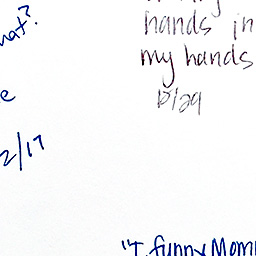 hat?
e
2/17
hands in
my hands
12/29
"I funny Mom